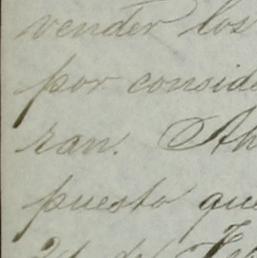 vender los
por consid
ran. Ah
puesto que